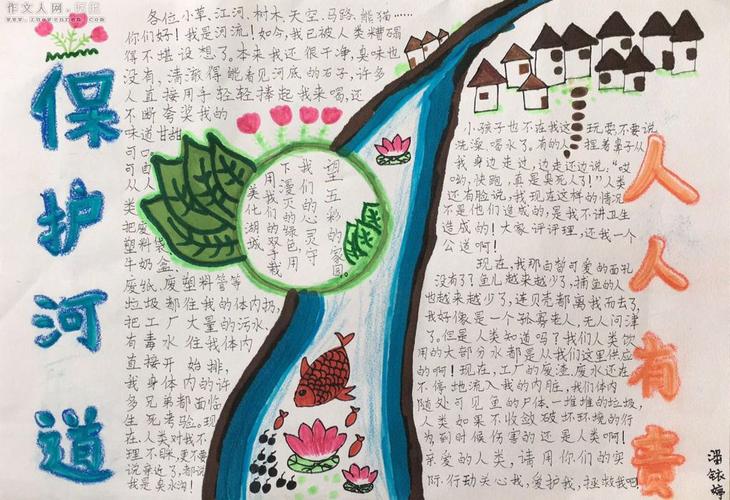 作文人网
www.zuowenren.com
保护河道
各位小草、江河、树木、天空、马路、熊猫……
你们好！我是河流！如今，我已被人类糟蹋
得不堪设想了。本来我还很干净，臭味也
没有，清澈得能看见河底的石子，许多
人直接用手轻轻捧起我来喝，还
不断夸奖我的
味道甘甜
可口。
可自
从人
类
把废
塑料袋、
牛奶盒、
废纸、废塑料管等
垃圾都往我的体内扔，
把工厂大量的污水，
有毒水往我体内
直接开始排，
我身体内的许
多兄弟都面临
生死考验。现
在，人类对我不
理不睬，更不要
说亲近了，都说
我是臭水沟！
望五彩的家园。
我们的心灵守
下漫灭的绿色，用
用我们的双手栽
美化湖城
小孩子也不在我这玩耍，不要说
洗澡、喝水了。有的人捏着鼻子从
我身边走过，边走还边说：“哎
哟，快跑，真是臭死人了！”人类
还有脸说，我现在这样的情况
不是他们造成的，是我不讲卫生
造成的！大家评评理，还我一个
公道啊！
现在，我那白皙可爱的面孔
没有了？鱼儿越来越少了，捕鱼的人
也越来越少了，连贝老都离我而去了，
我好像是一个孤寡老人，无人问津
了。但是人类知道吗？我们人类饮
用的大部分水都是从我们这里供应
的啊！现在，工厂的废渣、废水还在
不停地流入我的内脏，我们体内
随处可见鱼的尸体、一堆堆的垃圾，
人类如果不收敛破坏环境的行
为，到时候伤害的还是人类啊！
亲爱的人类，请用你们的实
际行动关心我，爱护我，拯救我吧！
人人有责